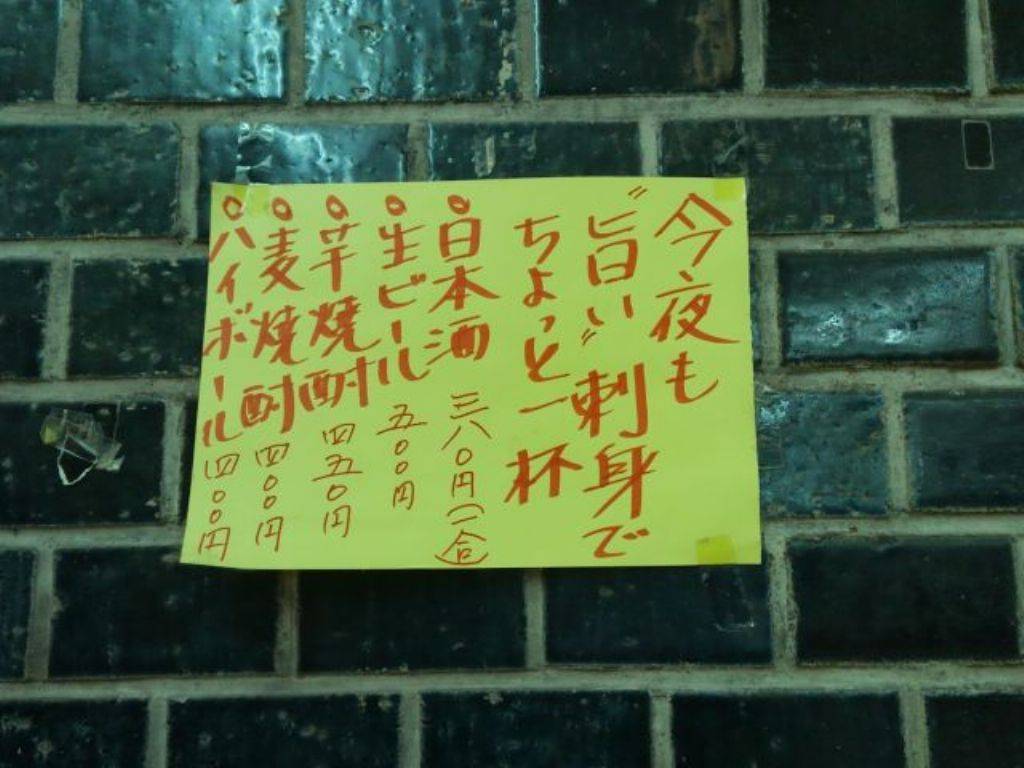 今夜も
〝旨い〟刺身で
ちょっと一杯
○日本酒 三八〇円(一合)
○生ビール 五〇〇円
○芋焼酎 四五〇円
○麦焼酎 四〇〇円
○ハイボール 四〇〇円